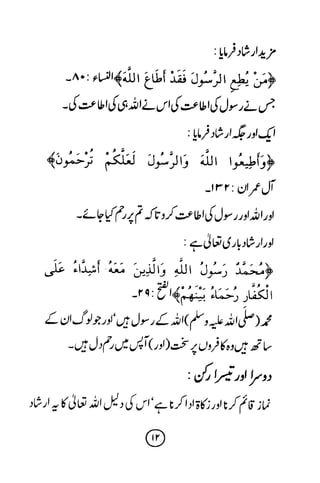 مزید ارشاد فرمایا :
﴿مَنْ يُطِعِ الرَّسُولَ فَقَدْ أَطَاعَ اللَّهَ﴾ النساء : ۸۰۔
جس نے رسول کی اطاعت کی اس نے اللہ ہی کی اطاعت کی۔
ایک اور جگہ ارشاد فرمایا :
﴿وَأَطِيعُوا اللَّهَ وَالرَّسُولَ لَعَلَّكُمْ تُرْحَمُونَ﴾
آل عمران : ۱۳۲۔
اور اللہ اور رسول کی اطاعت کرو تاکہ تم پر رحم کیا جائے۔
اور ارشاد باری تعالیٰ ہے :
﴿مُحَمَّدٌ رَسُولُ اللَّهِ وَالَّذِينَ مَعَهُ أَشِدَّاءُ عَلَى
الْكُفَّارِ رُحَمَاءُ بَيْنَهُمْ﴾ الفتح : ۲۹۔
محمد (صلی اللہ علیہ وسلم) اللہ کے رسول ہیں‘ اور جو لوگ ان کے
ساتھ ہیں وہ کافروں پر سخت (اور) آپس میں رحم دل ہیں۔
دوسرا اور تیسرا رکن :
نماز قائم کرنا اور زکاۃ ادا کرنا ہے‘ اس کی دلیل اللہ تعالیٰ کا یہ ارشاد
۱۲